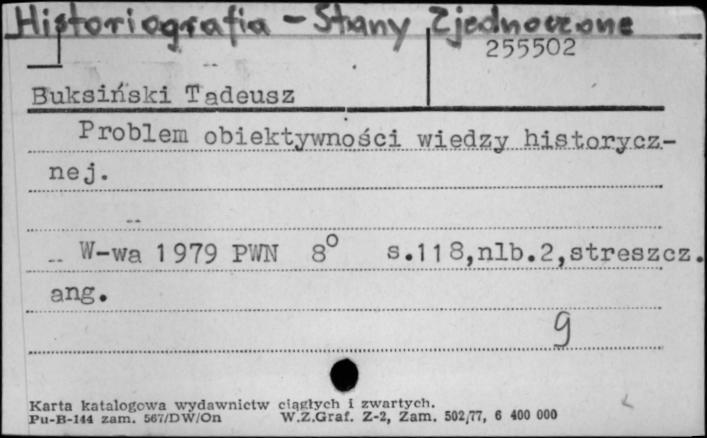 Historiografia - Stany Zjednoczone
255502
Buksiński Tadeusz
Problem obiektywności wiedzy historycz-
nej.
W-wa 1979 PWN 8° s.118,nlb.2,streszcz.
ang.
g
Karta katalogowa wydawnictw ciągłych i zwartych.
Pu-B-144 zam. 567/DW/On W.Z.Graf. Z-2, Zam. 502/77, 6 400 000